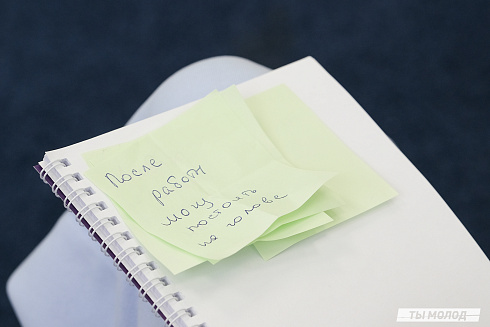 После
работу
могу
постоить
на голове
ТЫ МОЛОД